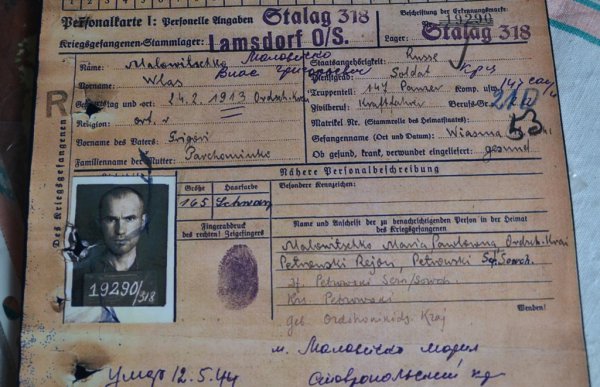 Personalkarte I: Personelle Angaben
Stalag 318
Beschriftung der Erkennungsmarke
19290
Kriegsgefangenen-Stammlager:
Lamsdorf O/S.
Lager:
Stalag 318
Name: Malowitschko Маловичко
Staatsangehörigkeit: Russe
Vorname: Wlas Влас Григорович
Dienstgrad: Soldat
Geburtstag und -ort: 24.2.1913 Ordsh. Krai
Truppenteil: 147 Panzer Komp. usw.:
Religion: ort.
Zivilberuf: Kraftfahrer Berufs-Gr.:
Matrikel Nr. (Stammrolle des Heimatstaates)
53
Vorname des Vaters: Grigori
Gefangennahme (Ort und Datum): Wiasma
Familienname der Mutter: Parchominko
Ob gesund, krank, verwundet eingeliefert: gesund
Des Kriegsgefangenen
Nähere Personalbeschreibung
Größe
Haarfarbe
Besondere Kennzeichen:
165
Schwarz
Fingerabdruck
des rechten! Zeigefingers
Name und Anschrift der zu benachrichtigenden Person in der Heimat
des Kriegsgefangenen
Malowitschko Maria Pawlowna, Ordsh. Krai
Petrowski Rejon, Petrowski
Krs. Petrowski
Wenden!
Kraj
19290/318
м. Маловичко Мария
Умар 12.5.44
Ставропольский кр